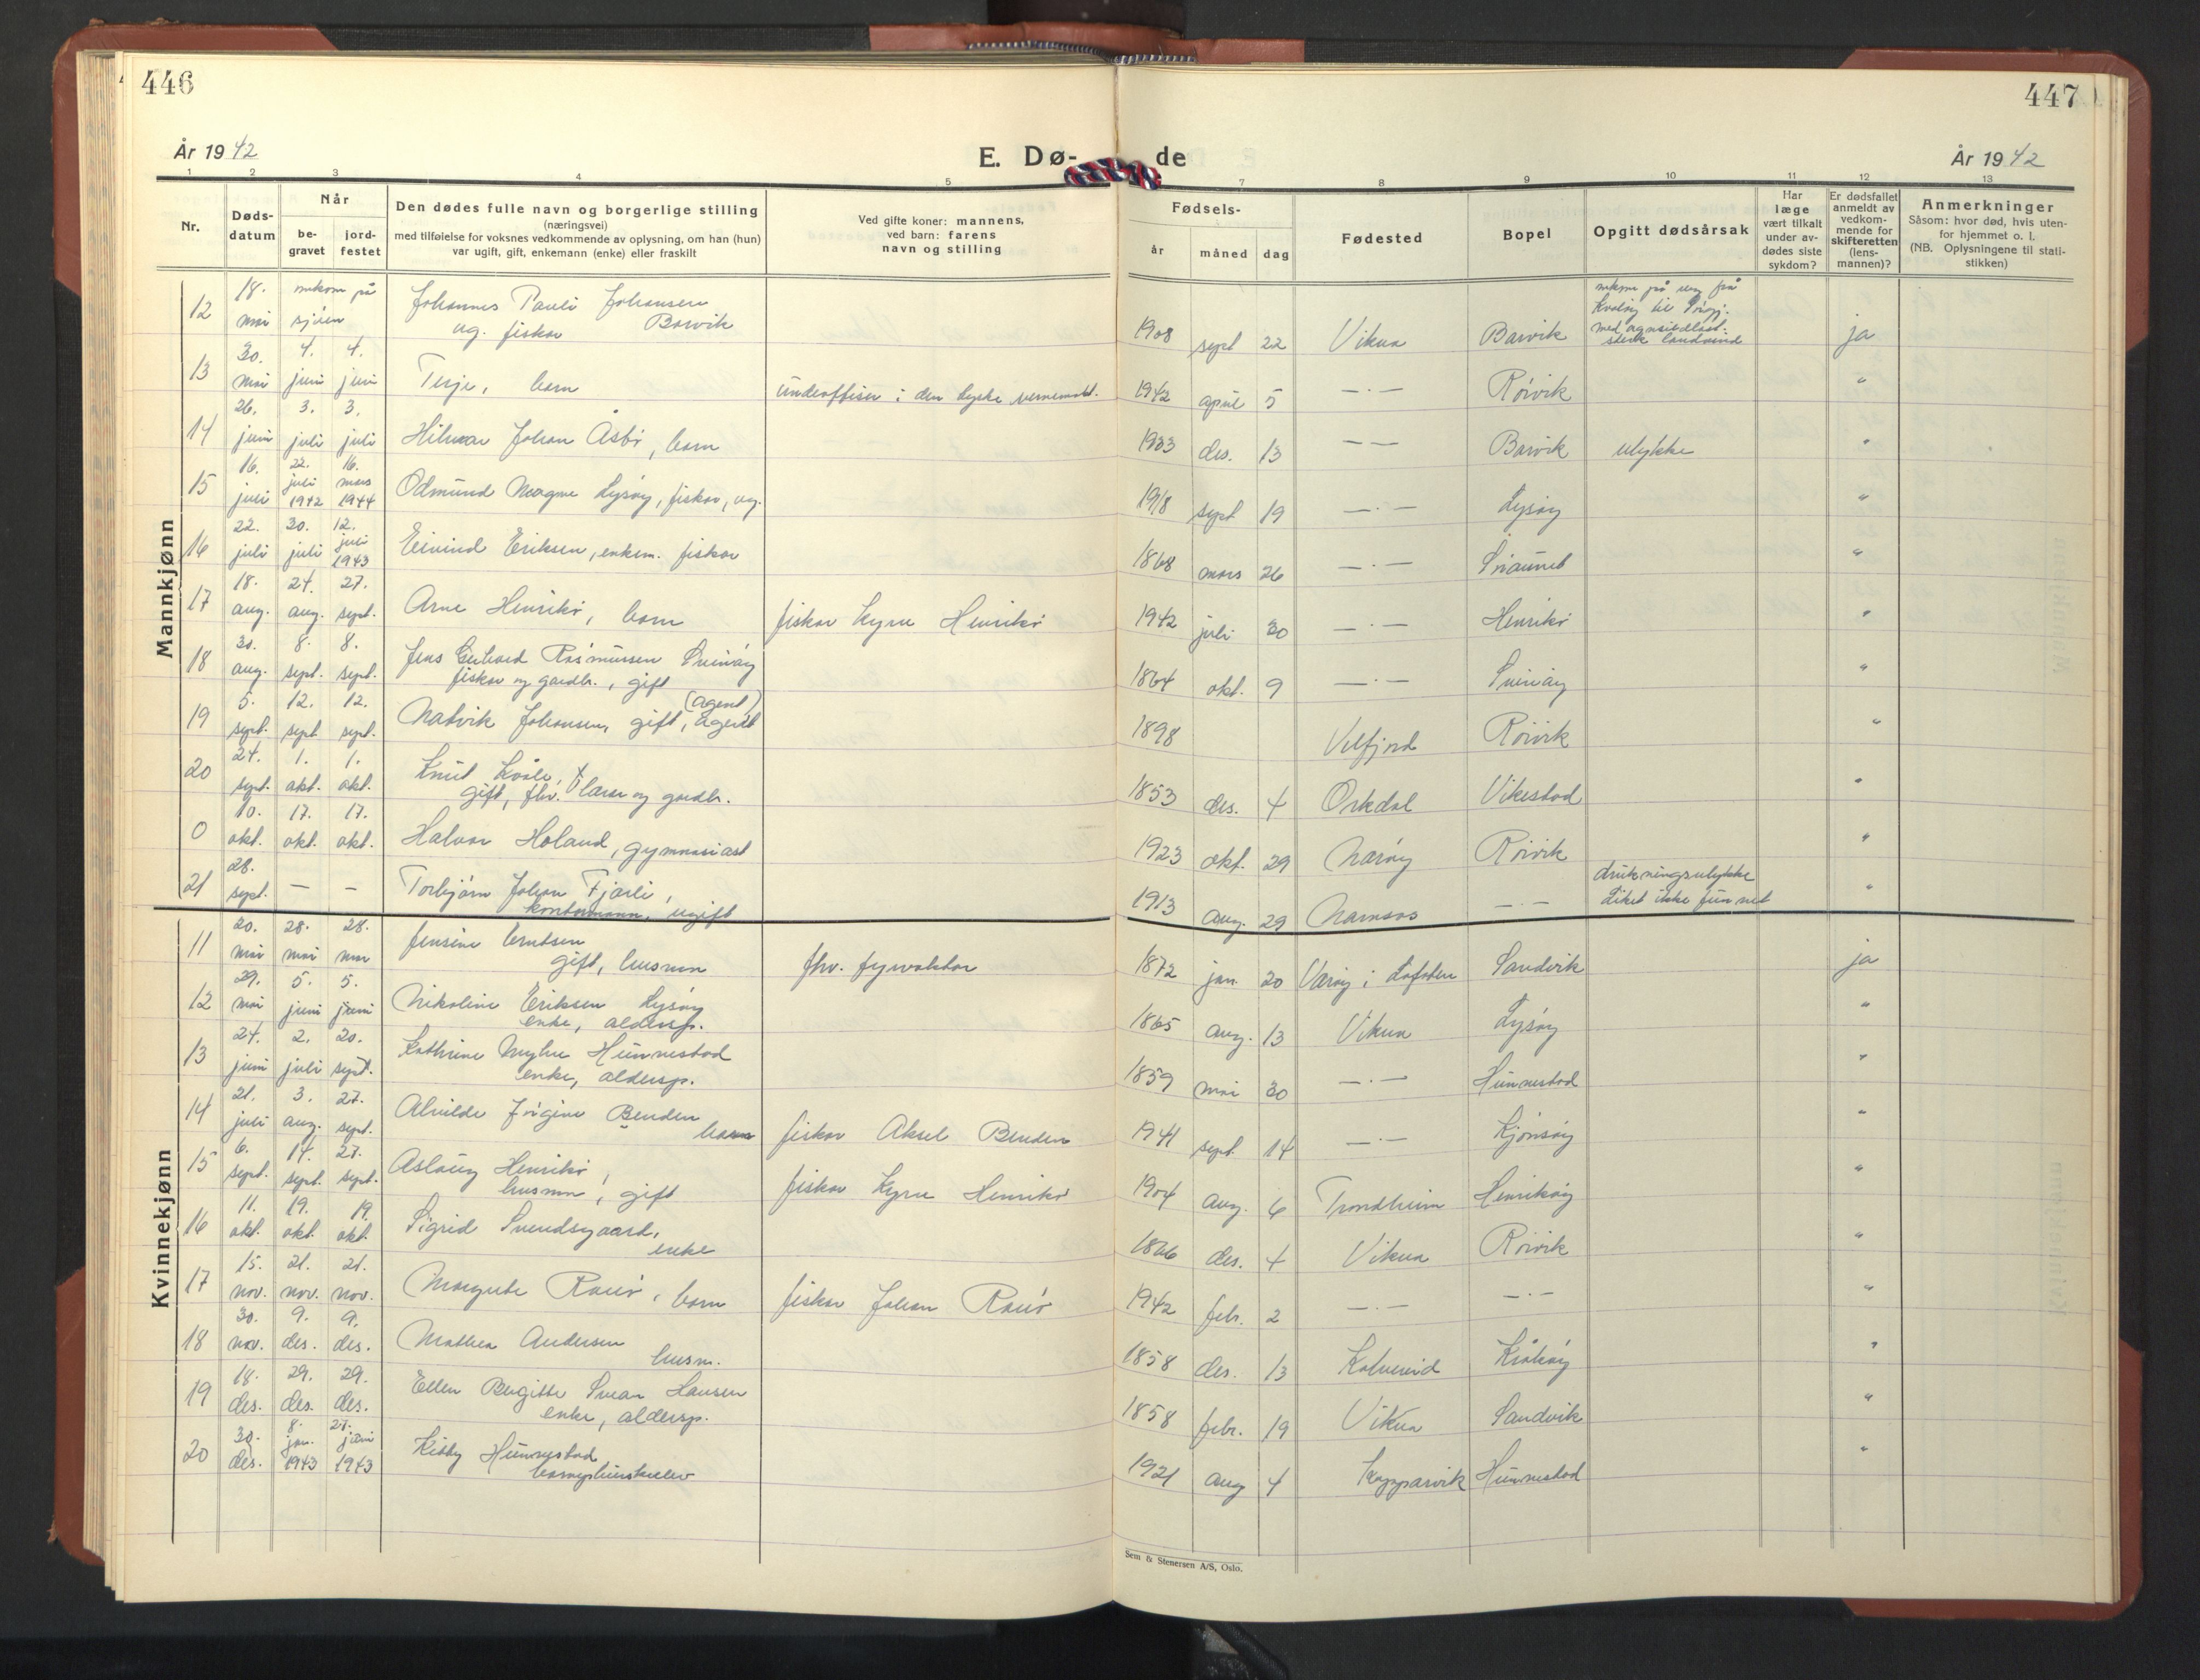 446
År 1942
E. Dø-
1 2 3 4 5
Nr.
Døds-
datum
Når
be-
gravet
jord-
festet
Den dødes fulle navn og borgerlige stilling
(næringsvei)
med tilføielse for voksnes vedkommende av oplysning, om han (hun)
var ugift, gift, enkemann (enke) eller fraskilt
Ved gifte koner: mannens,
ved barn: farens
navn og stilling
Mannkjønn
12 18. mai omkom på sjøen Johannes Pauli Johansen
ug. fisker Barvik
13 30. mai 4. juni 4. juni Terje, barn underoffiser i den tyske vernemakt.
14 26. juni 3. juli 3. juli Hilmar Johan Åsbø, barn
15 16. juli 22. juli 1942 16. mars 1944 Odmund Magne Lysøy, fisker, ug.
16 22. juli 30. juli 12. juli 1943 Eivind Eriksen, enkem. fisker
17 18. aug. 24. aug. 27. sept. Arne Henrikø, barn fisker Kyrre Henrikø
18 30. aug. 8. sept. 8. sept. Jens Gerhard Rasmussen Svinøy
fisker og gardbr., gift
19 5. sept. 12. sept. 12. sept. Natvik Johansen, gift, agent (agent)
20 24. sept. 1. okt. 1. okt. Knut Kvåle,
gift, fhv. lærer og gardbr.
0 10. okt. 17. okt. 17. okt. Halvor Holand, gymnasiast
21 28. sept. — — Torbjørn Johan Fjærli,
kontormann, ugift
Kvinnekjønn
11 20. mai 28. mai 28. mai Jensine Berntsen
gift, husmor fhv. fyrvokter
12 29. mai 5. juni 5. juni Nikoline Eriksen Lysøy
enke, aldersp.
13 24. juni 2. juli 20. sept. Kathrine Myhre Hunnestad
enke, aldersp.
14 21. juli 3. aug. 27. sept. Alvilde Jørgine Benden
barn fisker Aksel Benden
15 6. sept. 14. sept. 27. sept. Aslaug Henrikø,
husmor, gift fisker Kyrre Henrikø
16 11. okt. 19. okt. 19. okt. Sigrid Svendsgaard,
enke
17 15. nov. 21. nov. 21. nov. Margrete Raurø, barn fisker Johan Raurø
18 30. nov. 9. des. 9. des. Mathea Andersen
husm.
19 18. des. 29. des. 29. des. Ellen Birgitte Svean Hansen
enke, aldersp.
20 30. des. 8. jan. 1943 27. juni 1943 Kitty Hunnestad
447
de
År 1942
7 8 9 10 11 12 13
Fødsels-
år måned dag
Fødested
Bopel
Opgitt dødsårsak
Har
læge
vært tilkalt
under av-
dødes siste
sykdom?
Er dødsfallet
anmeldt av
vedkom-
mende for
skifteretten
(lens-
mannen)?
Anmerkninger
Såsom: hvor død, hvis uten-
for hjemmet o. l.
(NB. Oplysningene til stati-
stikken)
1908 sept 22 Vikna Barvik omkom på veg frå
Kvaløy til
sterk landvind ja
1942 april 5 —.— Rørvik "
1933 des. 13 —— Barvik ulykke "
1918 sept 19 —.— Lysøy "
1868 mars 26 —.— "
1942 juli 30 —.— Henrikø "
1864 okt. 9 —.— Svinøy "
1898 Velfjord Rørvik "
1853 des. 4 Orkdal Vikestad "
1923 okt. 29 Nærøy Rørvik "
1913 aug. 29 Namsos —.— drukningsulykke
Liket ikke funnet "
1872 jan. 20 Værøy i Lofoten Sandvik ja
1865 aug. 13 Vikna Lysøy "
1859 mai 30 —.— Hunnestad "
1941 sept 14 —.— Kjønsøy "
1904 aug. 6 Trondheim Henrikøy "
1866 des. 4 Vikna Rørvik "
1942 febr. 2 —.— —.— "
1858 des. 13 Kolvereid Kråkøy "
1858 febr. 19 Vikna Sandvik "
1921 aug 4 Kopparvik Hunnestad "
Sem & Stenersen A/S, Oslo.